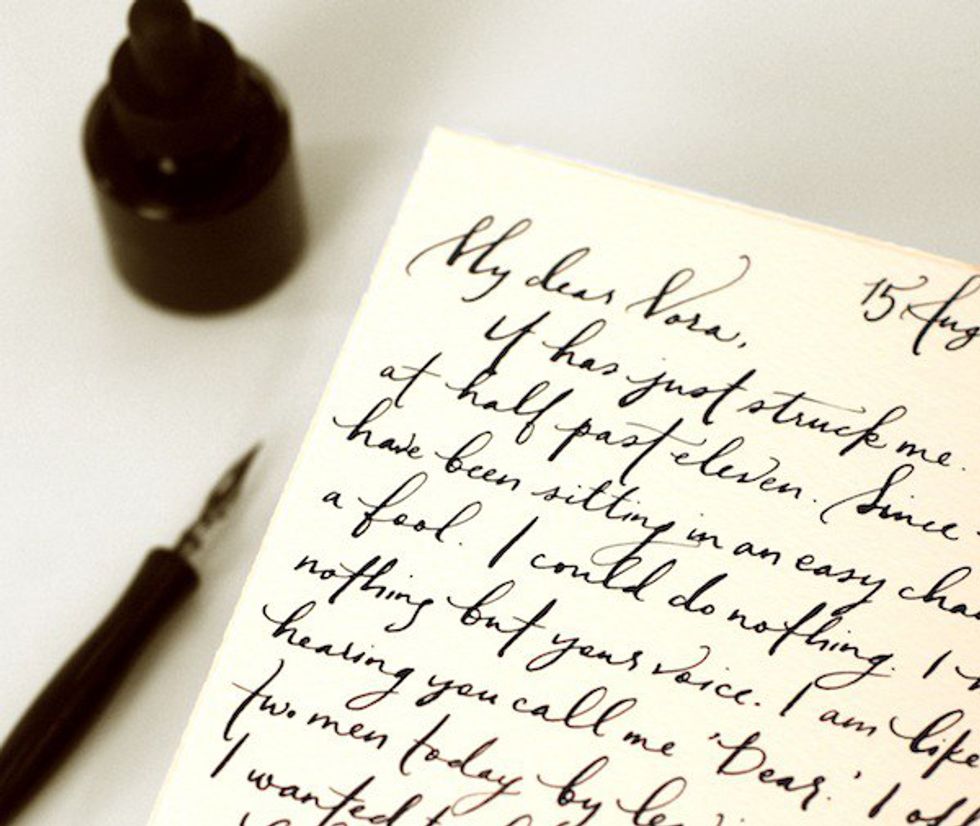 15 Aug
My dear Nora,
It has just struck me.
at half past eleven. Since
have been sitting in an easy
a fool. I could do nothing. I
nothing but your voice. I am like
hearing you call me 'Dear.' I
two men today by
I wanted